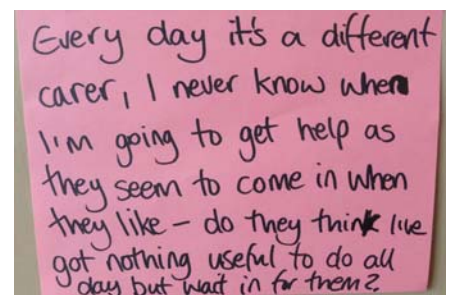 Every day it's a different
carer, I never know when
I'm going to get help as
they seem to come in when
they like – do they think I've
got nothing useful to do all
day but wait in for them?